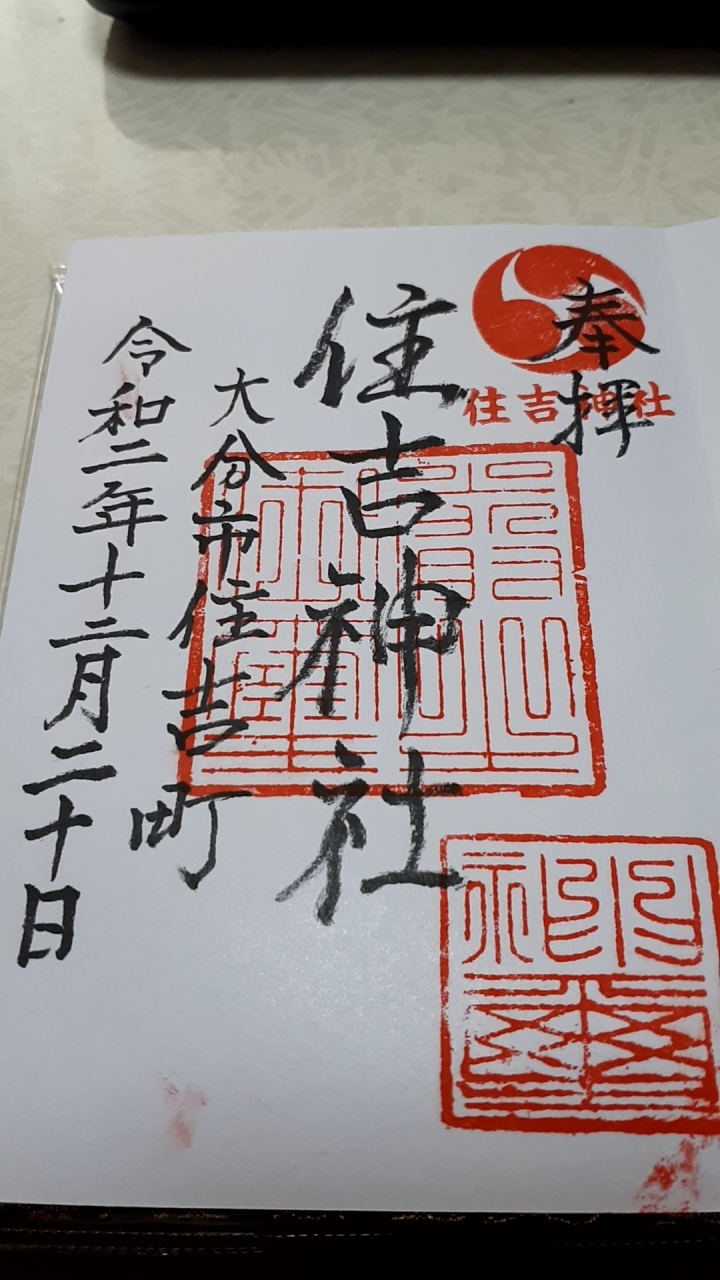 奉拝
住吉神社
住吉神社
大分市住吉町
令和二年十二月二十日